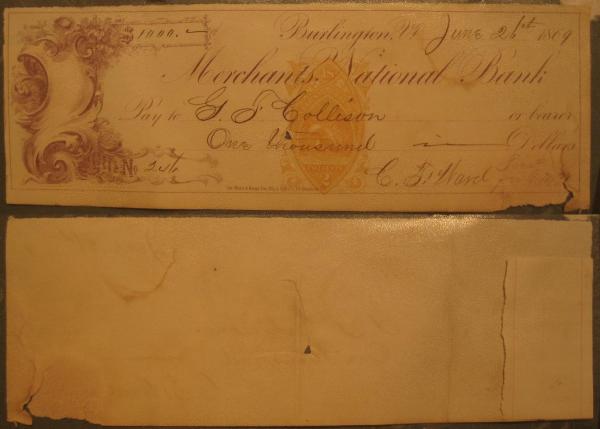 $ 1000.-
Burlington, Vt. June 26th 1869
Merchants National Bank
Pay to G. F. Collison or bearer
One thousand Dollars
No 256
C. F. Ward